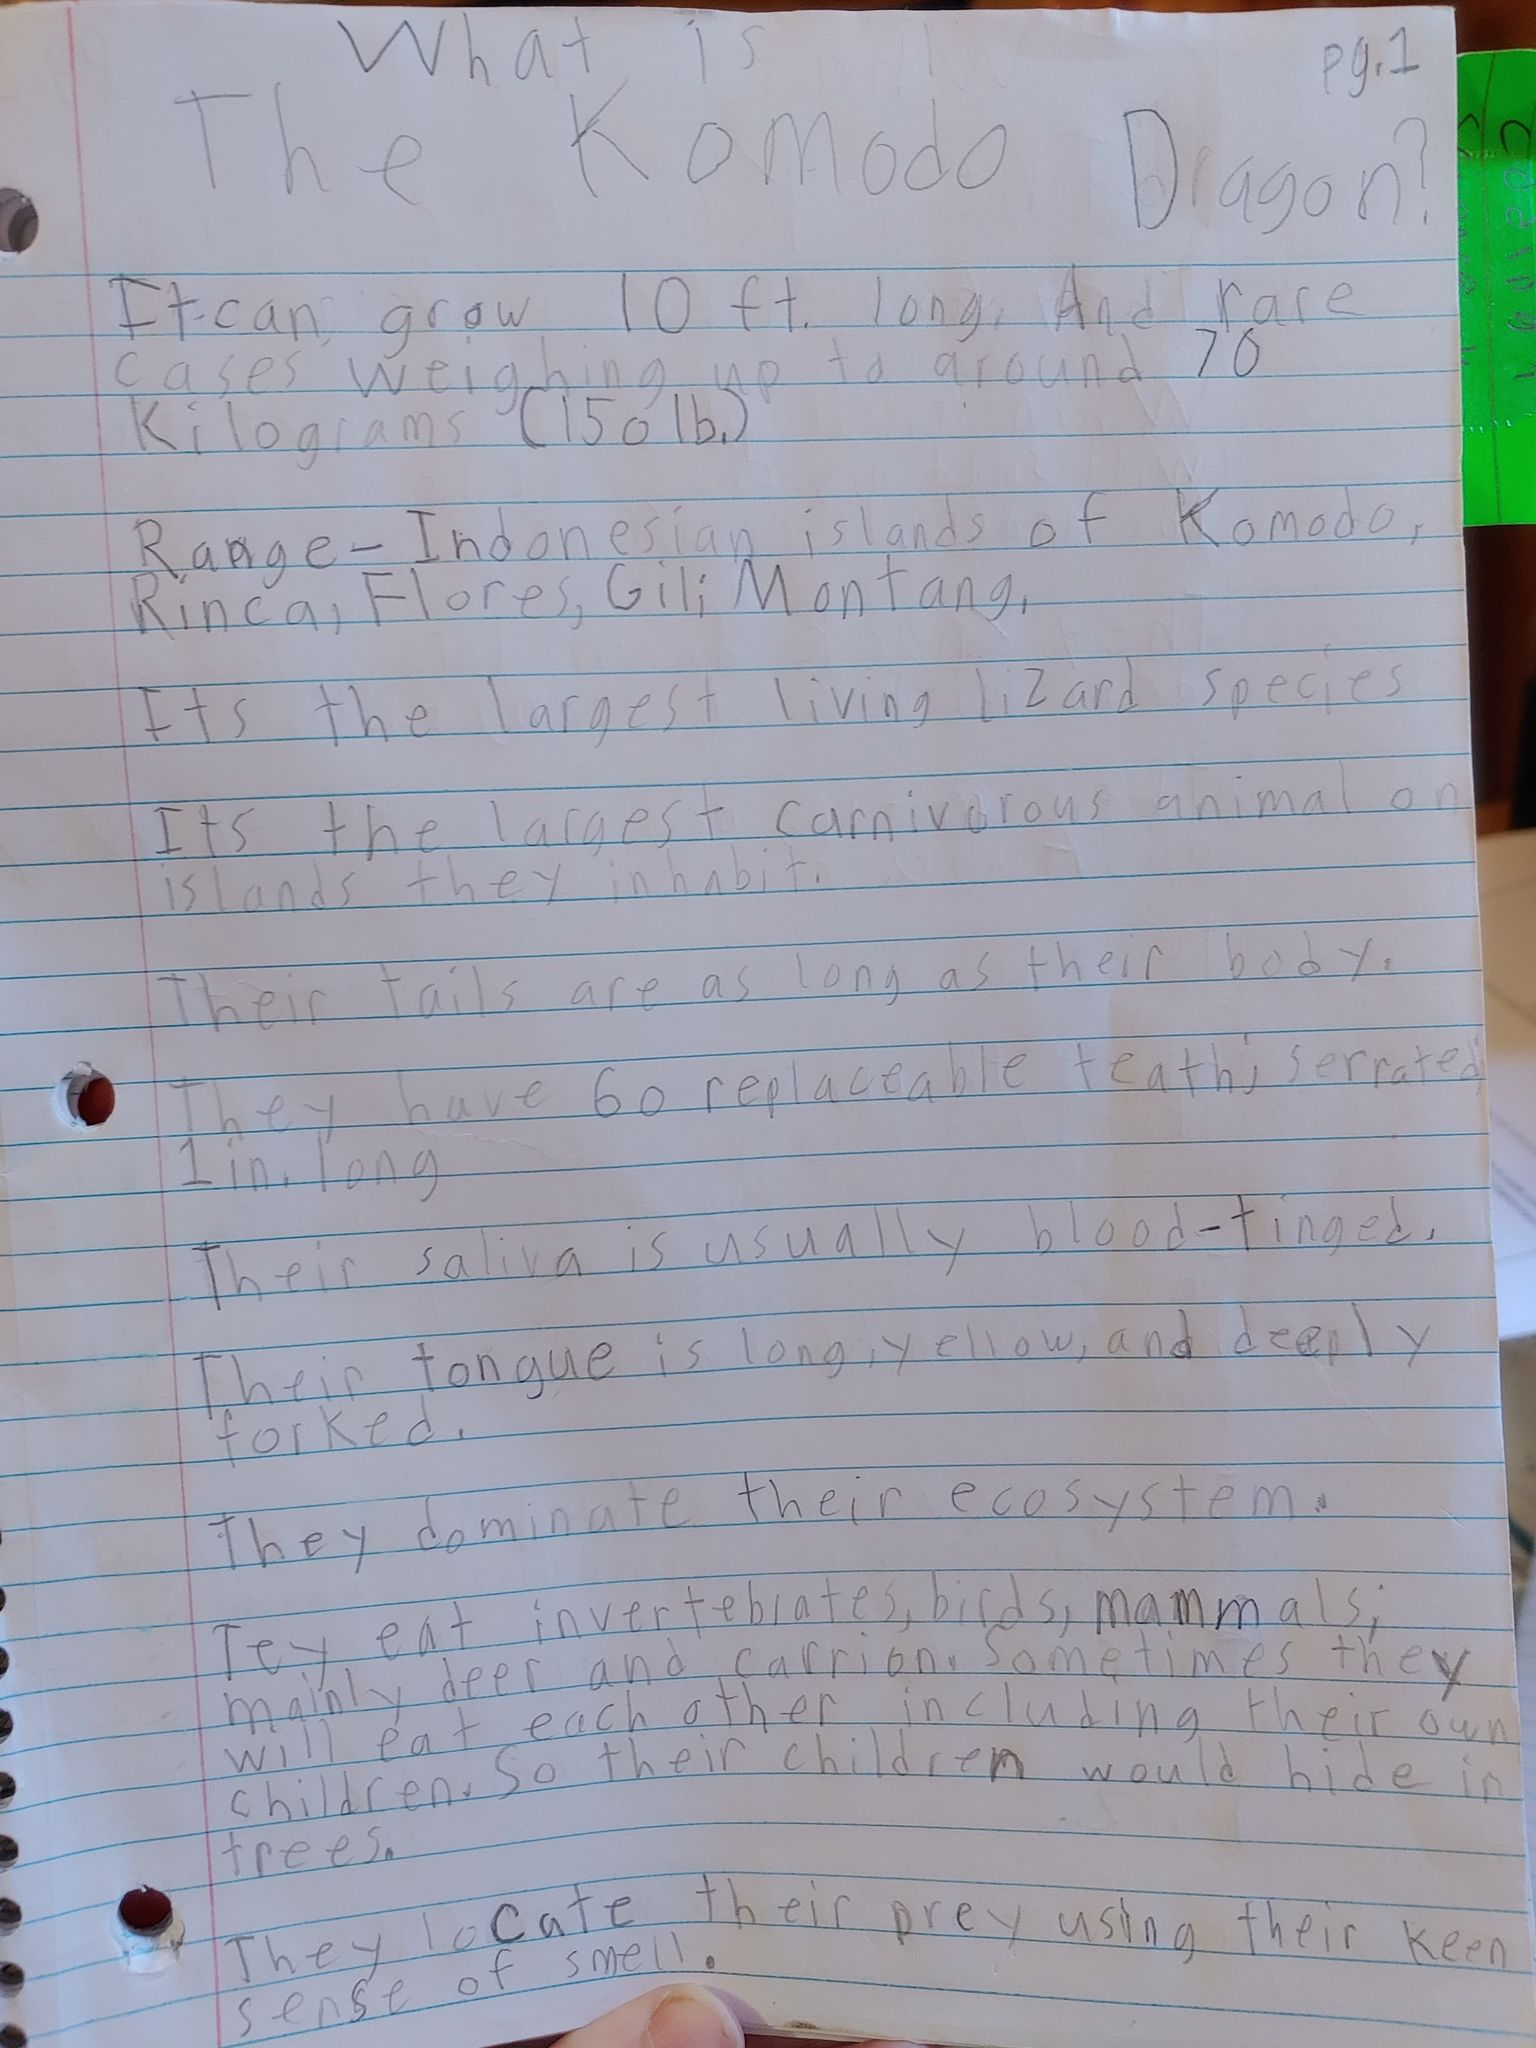 What is
pg.1
The Komodo Dragon?
It can grow 10 ft. long. And rare
cases weighing up to around 70
Kilograms (150 lb.)
Range - Indonesian islands of Komodo,
Rinca, Flores, Gili Montang.
Its the largest living lizard species
Its the largest carnivorous animal on
islands they inhabit.
Their tails are as long as their body.
They have 60 replaceable teath, serrated
1 in. long
Their saliva is usually blood-tinged.
Their tongue is long, yellow, and deeply
forked.
They dominate their ecosystem.
Tey eat invertebrates, birds, mammals;
mainly deer and carrion. Sometimes they
will eat each other including their own
children. So their children would hide in
trees.
They locate their prey using their keen
sense of smell.